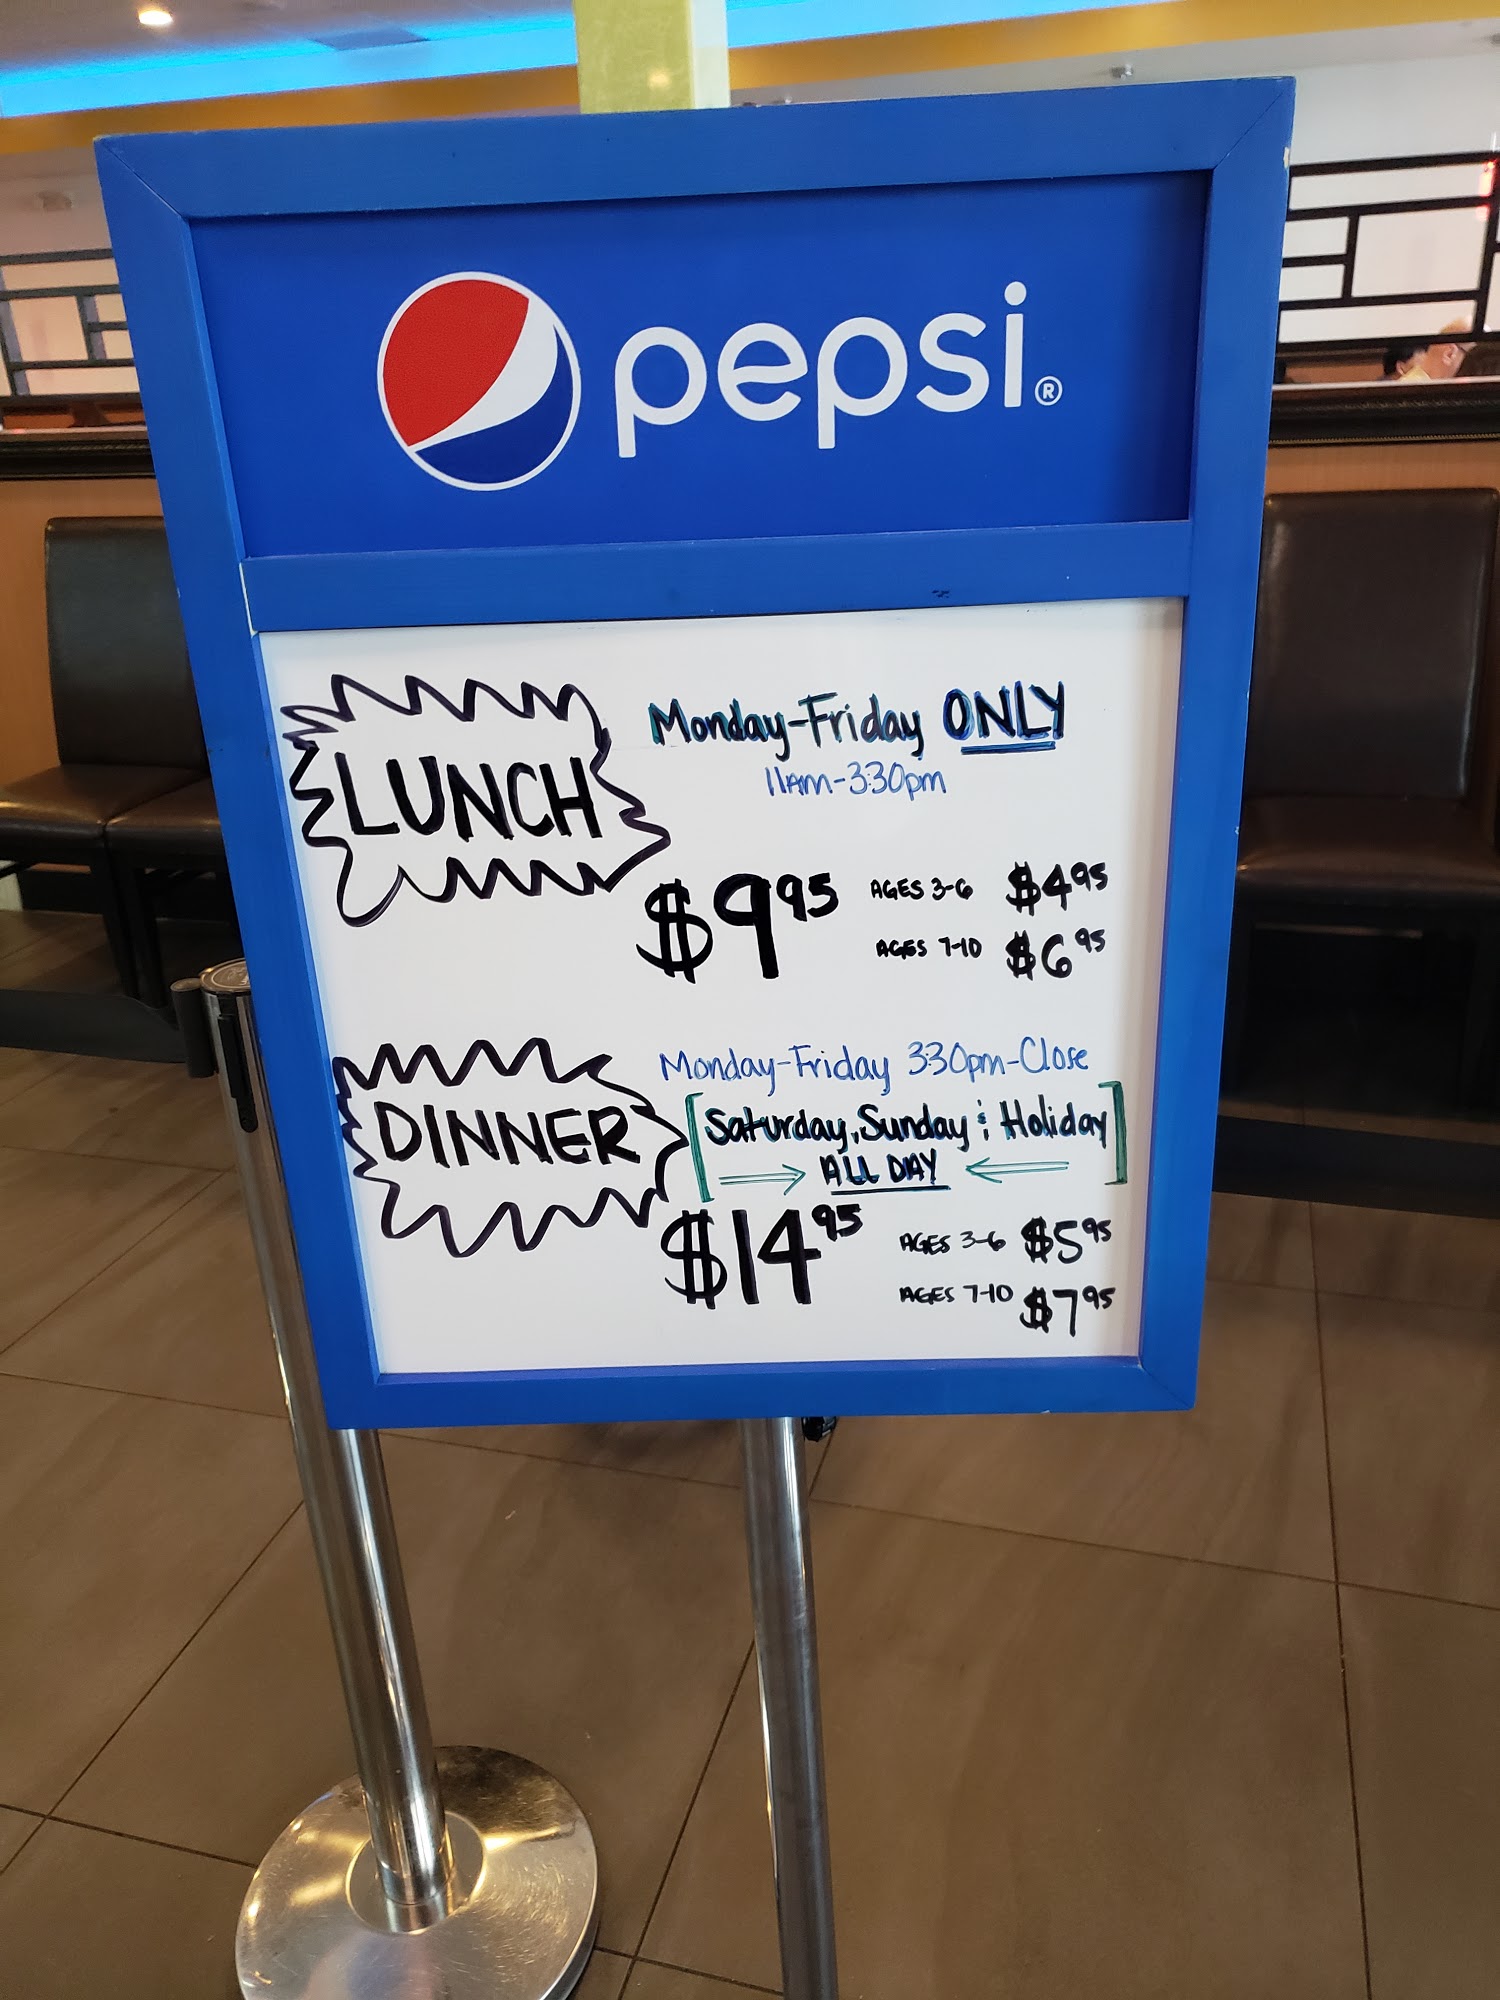 pepsi®
LUNCH
Monday-Friday ONLY
11AM-3:30pm
$9.95
AGES 3-6 $4.95
AGES 7-10 $6.95
DINNER
Monday-Friday 3:30pm-Close
[Saturday, Sunday & Holiday]
→ ALL DAY ←
$14.95
AGES 3-6 $5.95
AGES 7-10 $7.95